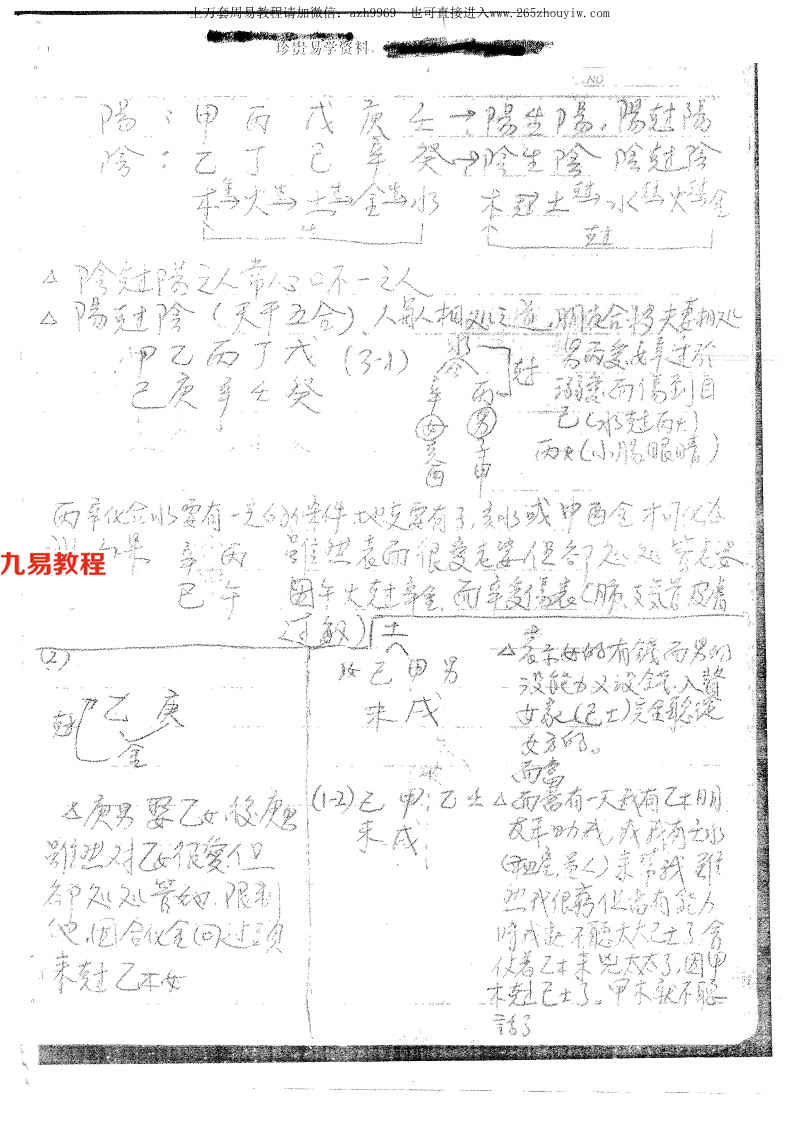 上万套周易教程请加微信：azh9969 也可直接进入www.265zhouyiw.com
珍贵易学资料
NO
陽：甲 丙 戊 庚 壬→陽生陽，陽尅陽
陰：乙 丁 己 辛 癸→陰生陰 陰尅陰
木 火 土 金 水 木尅土 水 火 金
生 尅
△ 陰尅陽之人常心口不一之人
△ 陽尅陰（天干五合）、人與人相处之道，朋友合夥夫妻相处
甲乙丙丁戊 (3-1)
己庚辛壬癸
水
尅
辛 丙
女 男
亥 子
酉 申
男丙愛女辛过於
溺愛而傷到自
己（水尅丙火）
丙火（小腸眼睛）
丙辛化合水要有一定的條件地支要有子，亥水或申酉金才可化合
如果 辛 丙 雖然表面很愛老婆但卻处处管老婆
巳 午 因午火尅辛金，而辛受傷表（肺、支氣管皮膚
过敏）
(2)
尅 乙 庚
金
△庚男娶乙女，後庚男
雖然对乙女很愛但
卻处处管她，限制
他，因合化金回过頭
來尅乙木女
土
女 己 甲 男
未 戌
△表示女的有錢而男的
沒能力又沒錢，入贅
女家（己土）完全聽從
女方的。
而當
(1-2) 己 甲；乙 壬
未 戌
△ 而當有一天我有乙木朋
友來助我，或我有壬水
來幫我 雖
然我很窮但當有能力
時 不聽太太己土了會
仗着乙木來兇太太了，因甲
木尅己土了。甲木就不聽
話了
九易教程